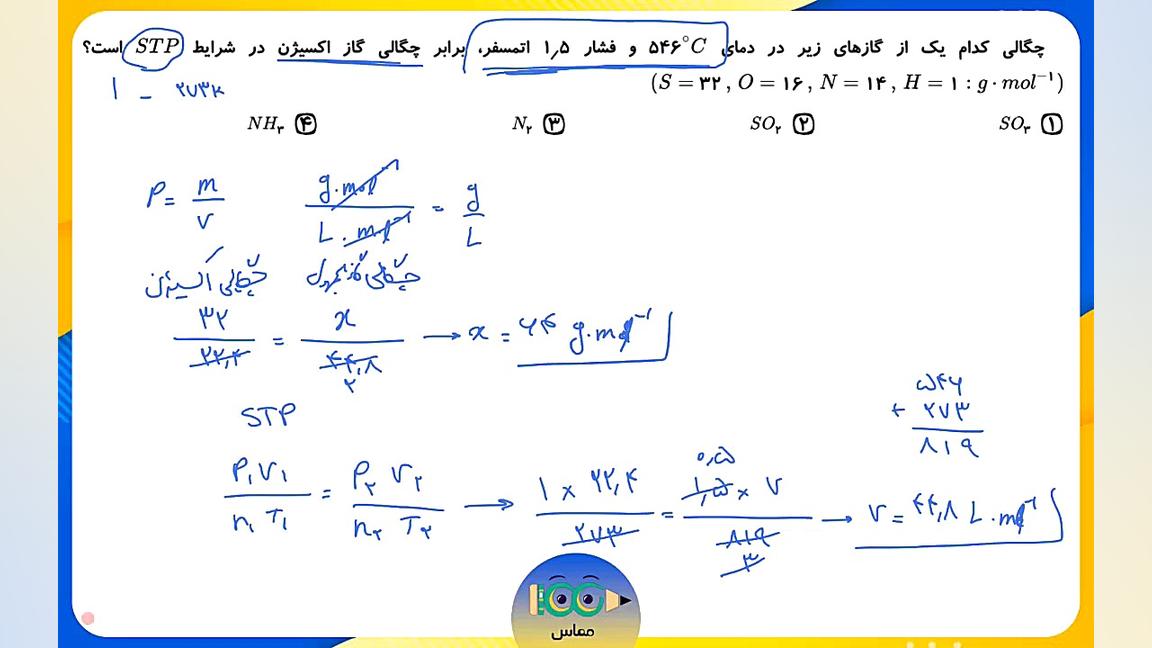 چگالی کدام یک از گازهای زیر در دمای ۵۴۶°C و فشار ۱٫۵ اتمسفر، برابر چگالی گاز اکسیژن در شرایط STP است؟
(S = ۳۲ , O = ۱۶ , N = ۱۴ , H = ۱ : g · mol⁻¹)
۱ - ۲۷۳K
۱ SO₃
۲ SO₂
۳ N₂
۴ NH₃
ρ = m/v g.mol⁻¹ / L.mol⁻¹ = g/L
چگالی اکسیژن چگالی گاز مجهول
۳۲/۲۲,۴ = x/۴۴,۸ → x = ۶۴ g.mol⁻¹
۲
STP
۵۴۶
+ ۲۷۳
۸۱۹
P₁V₁/n₁T₁ = P₂V₂/n₂T₂ → ۱ × ۲۲,۴/۲۷۳ = ۱,۵ × V/۸۱۹ → V = ۴۴,۸ L.mol⁻¹
۰,۵
۳
مماس